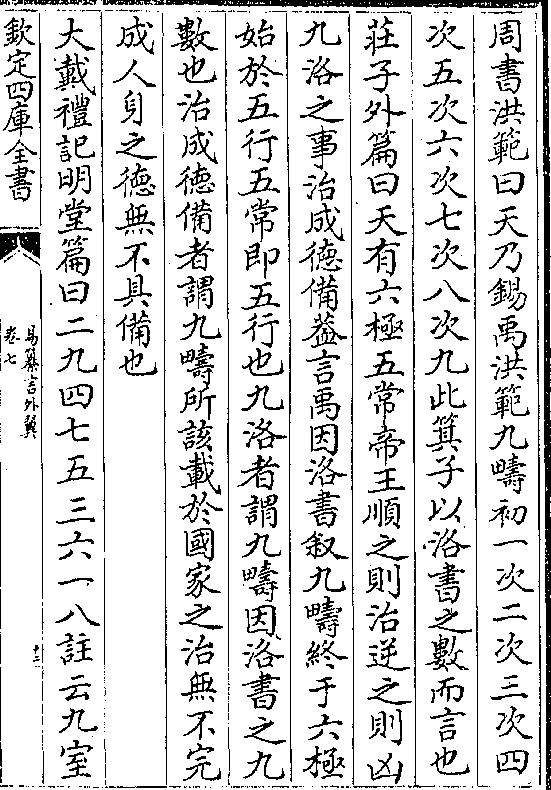 周書洪範曰天乃錫禹洪範九疇初一次二次三次四
次五次六次七次八次九此箕子以洛書之數而言也
莊子外篇曰天有六極五常帝王順之則治逆之則凶
九洛之事治成德備葢言禹因洛書叙九疇終于六極
始於五行五常即五行也九洛者謂九疇因洛書之九
數也治成德備者謂九疇所該載於國家之治無不完
成人身之德無不具備也
大戴禮記明堂篇曰二九四七五三六一八註云九室
欽定四庫全書
易纂言外翼
卷七
十二